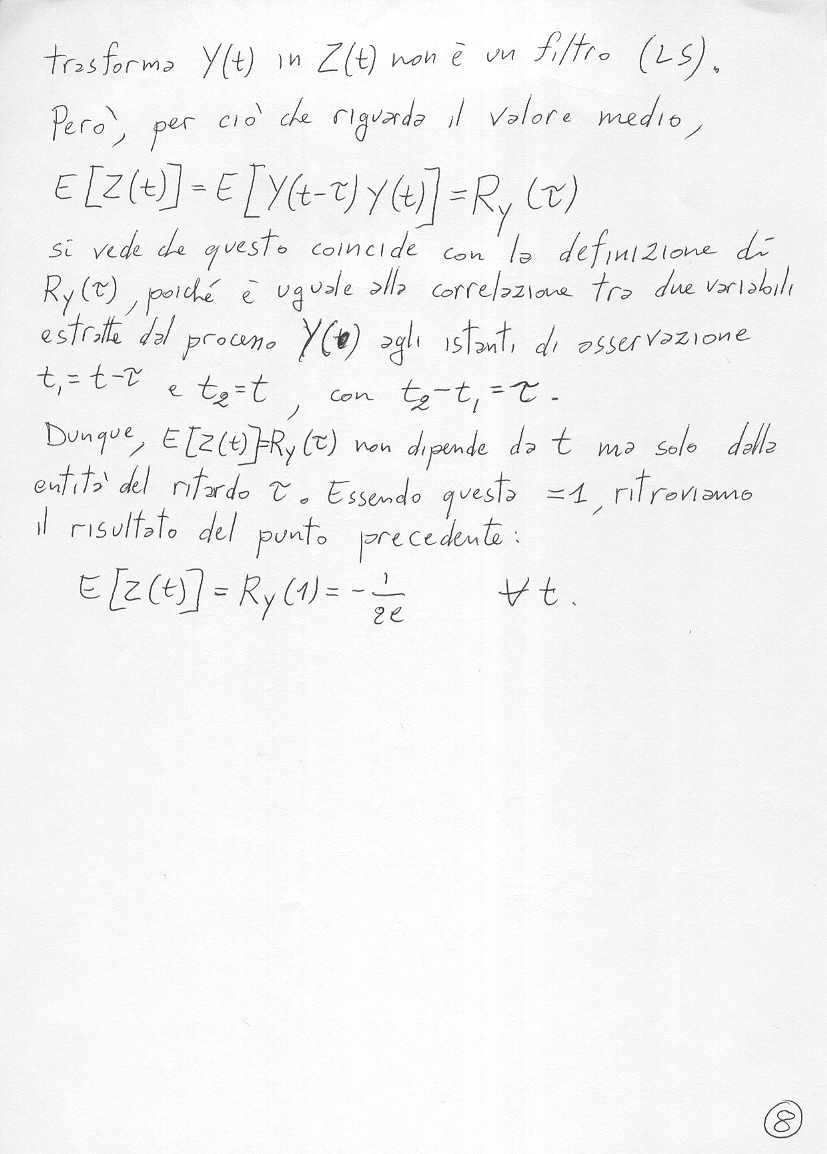 trasforma Y(t) in Z(t) non è un filtro (LS).
Però, per ciò che riguarda il valore medio,
E[Z(t)] = E[Y(t-τ) Y(t)] = R_Y(τ)
si vede che questo coincide con la definizione di
R_Y(τ), poiché è uguale alla correlazione tra due variabili
estratte dal processo Y(t) agli istanti di osservazione
t₁ = t-τ e t₂ = t, con t₂-t₁ = τ.
Dunque, E[Z(t)]=R_Y(τ) non dipende da t ma solo dalla
entità del ritardo τ. Essendo questa =1, ritroviamo
il risultato del punto precedente:
E[Z(t)] = R_Y(1) = -1/2e ∀ t.
8